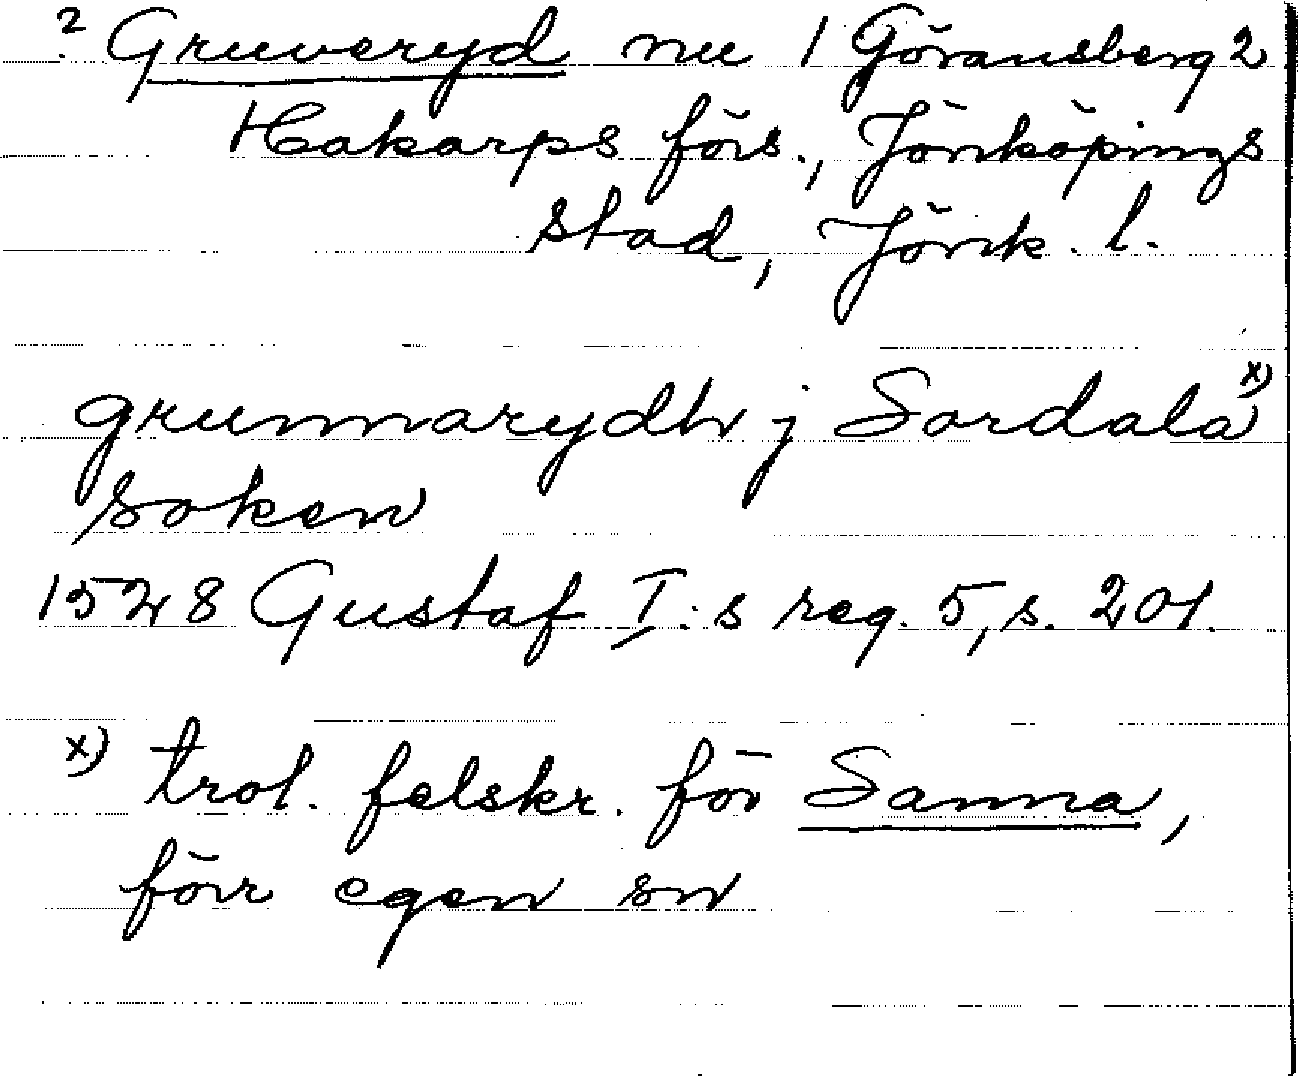 ? Gruveryd nu 1 Göransberg 2
Hakarps förs., Jönköpings
stad, Jönk. l.
grunnarydh j Sordala x)
soken
1528 Gustaf I:s reg. 5, s. 201.
x) trol. felskr. för Sanna,
förr egen sn